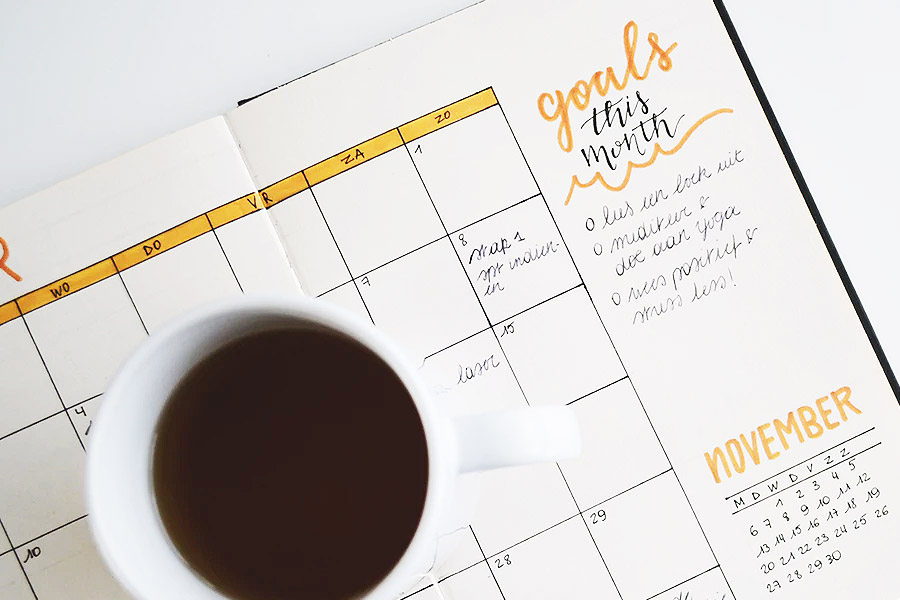 R
WO DO VR ZA ZO
1
4
7
8
stap 1
indien-
en
10
15
laser
28
29
goals
this
month
o lees een boek uit
o mediteer &
doe aan yoga
o wees positief &
stress less!
NOVEMBER
M D W D V Z Z
1 2 3 4 5
6 7 8 9 10 11 12
13 14 15 16 17 18 19
20 21 22 23 24 25 26
27 28 29 30